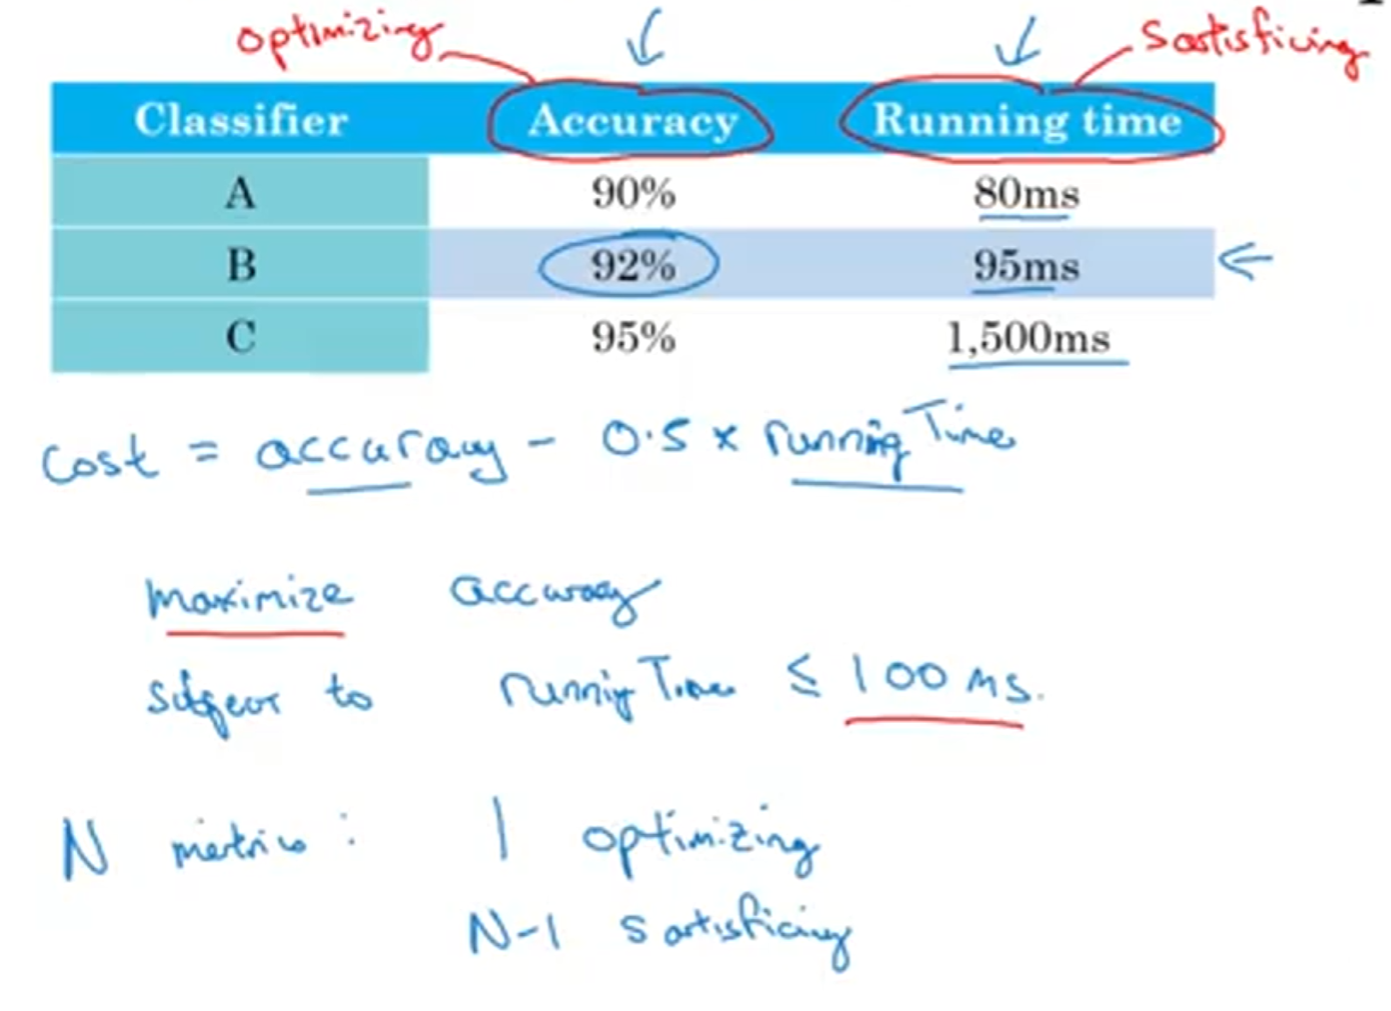 optimizing Satisficing
Classifier Accuracy Running time
A 90% 80ms
B 92% 95ms
C 95% 1,500ms
cost = accuracy - 0.5 x runningTime
maximize accuracy
subject to runningTime ≤ 100 ms.
N metrics: 1 optimizing
N-1 satisficing